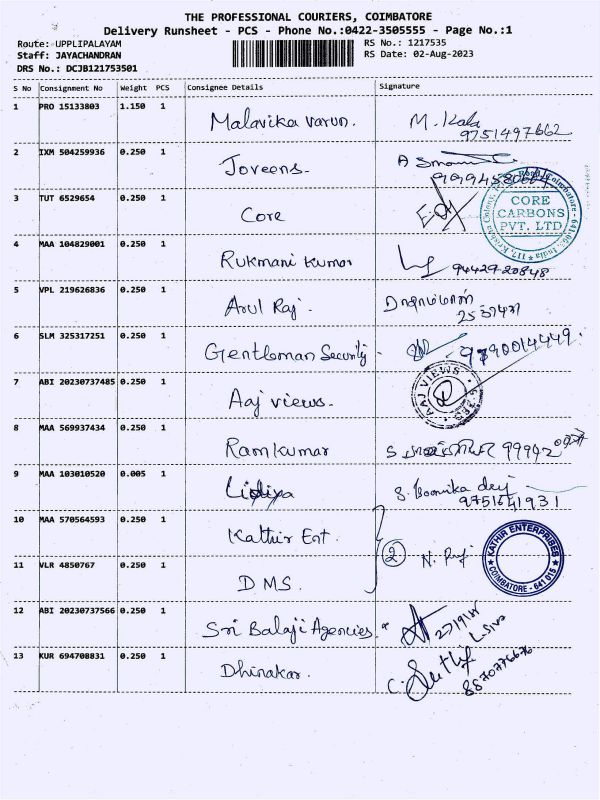 THE PROFESSIONAL COURIERS, COIMBATORE
Delivery Runsheet - PCS - Phone No.:0422-3505555 - Page No.:1
Route: UPPLIPALAYAM
Staff: JAYACHANDRAN
DRS No.: DCJB121753501
RS No.: 1217535
RS Date: 02-Aug-2023
S No Consignment No Weight PCS Consignee Details Signature
1 PRO 15133803 1.150 1 Malavika varun. M. Kala
9751497662
2 IXM 504259936 0.250 1 Joveens.
3 TUT 6529654 0.250 1 Core
CORE
CARBONS
PVT. LTD
4 MAA 104829001 0.250 1 Rukmani Kumar 94429-20848
5 VPL 219626836 0.250 1 Arul Raj.
6 SLM 325317251 0.250 1 Gentleman Security - 9790014449.
7 ABI 20230737485 0.250 1 Aaj views.
AAJ VIEWS
8 MAA 569937434 0.250 1 Ramkumar
9 MAA 103010520 0.005 1 Lidiya
9751641931
10 MAA 570564593 0.250 1 Kathir Ent.
2
KATHIR ENTERPRISES
COIMBATORE - 641 015
11 VLR 4850767 0.250 1 DMS.
12 ABI 20230737566 0.250 1 Sri Balaji Agencies.
L. Siva
13 KUR 694708831 0.250 1 Dhinakar.
8870776676